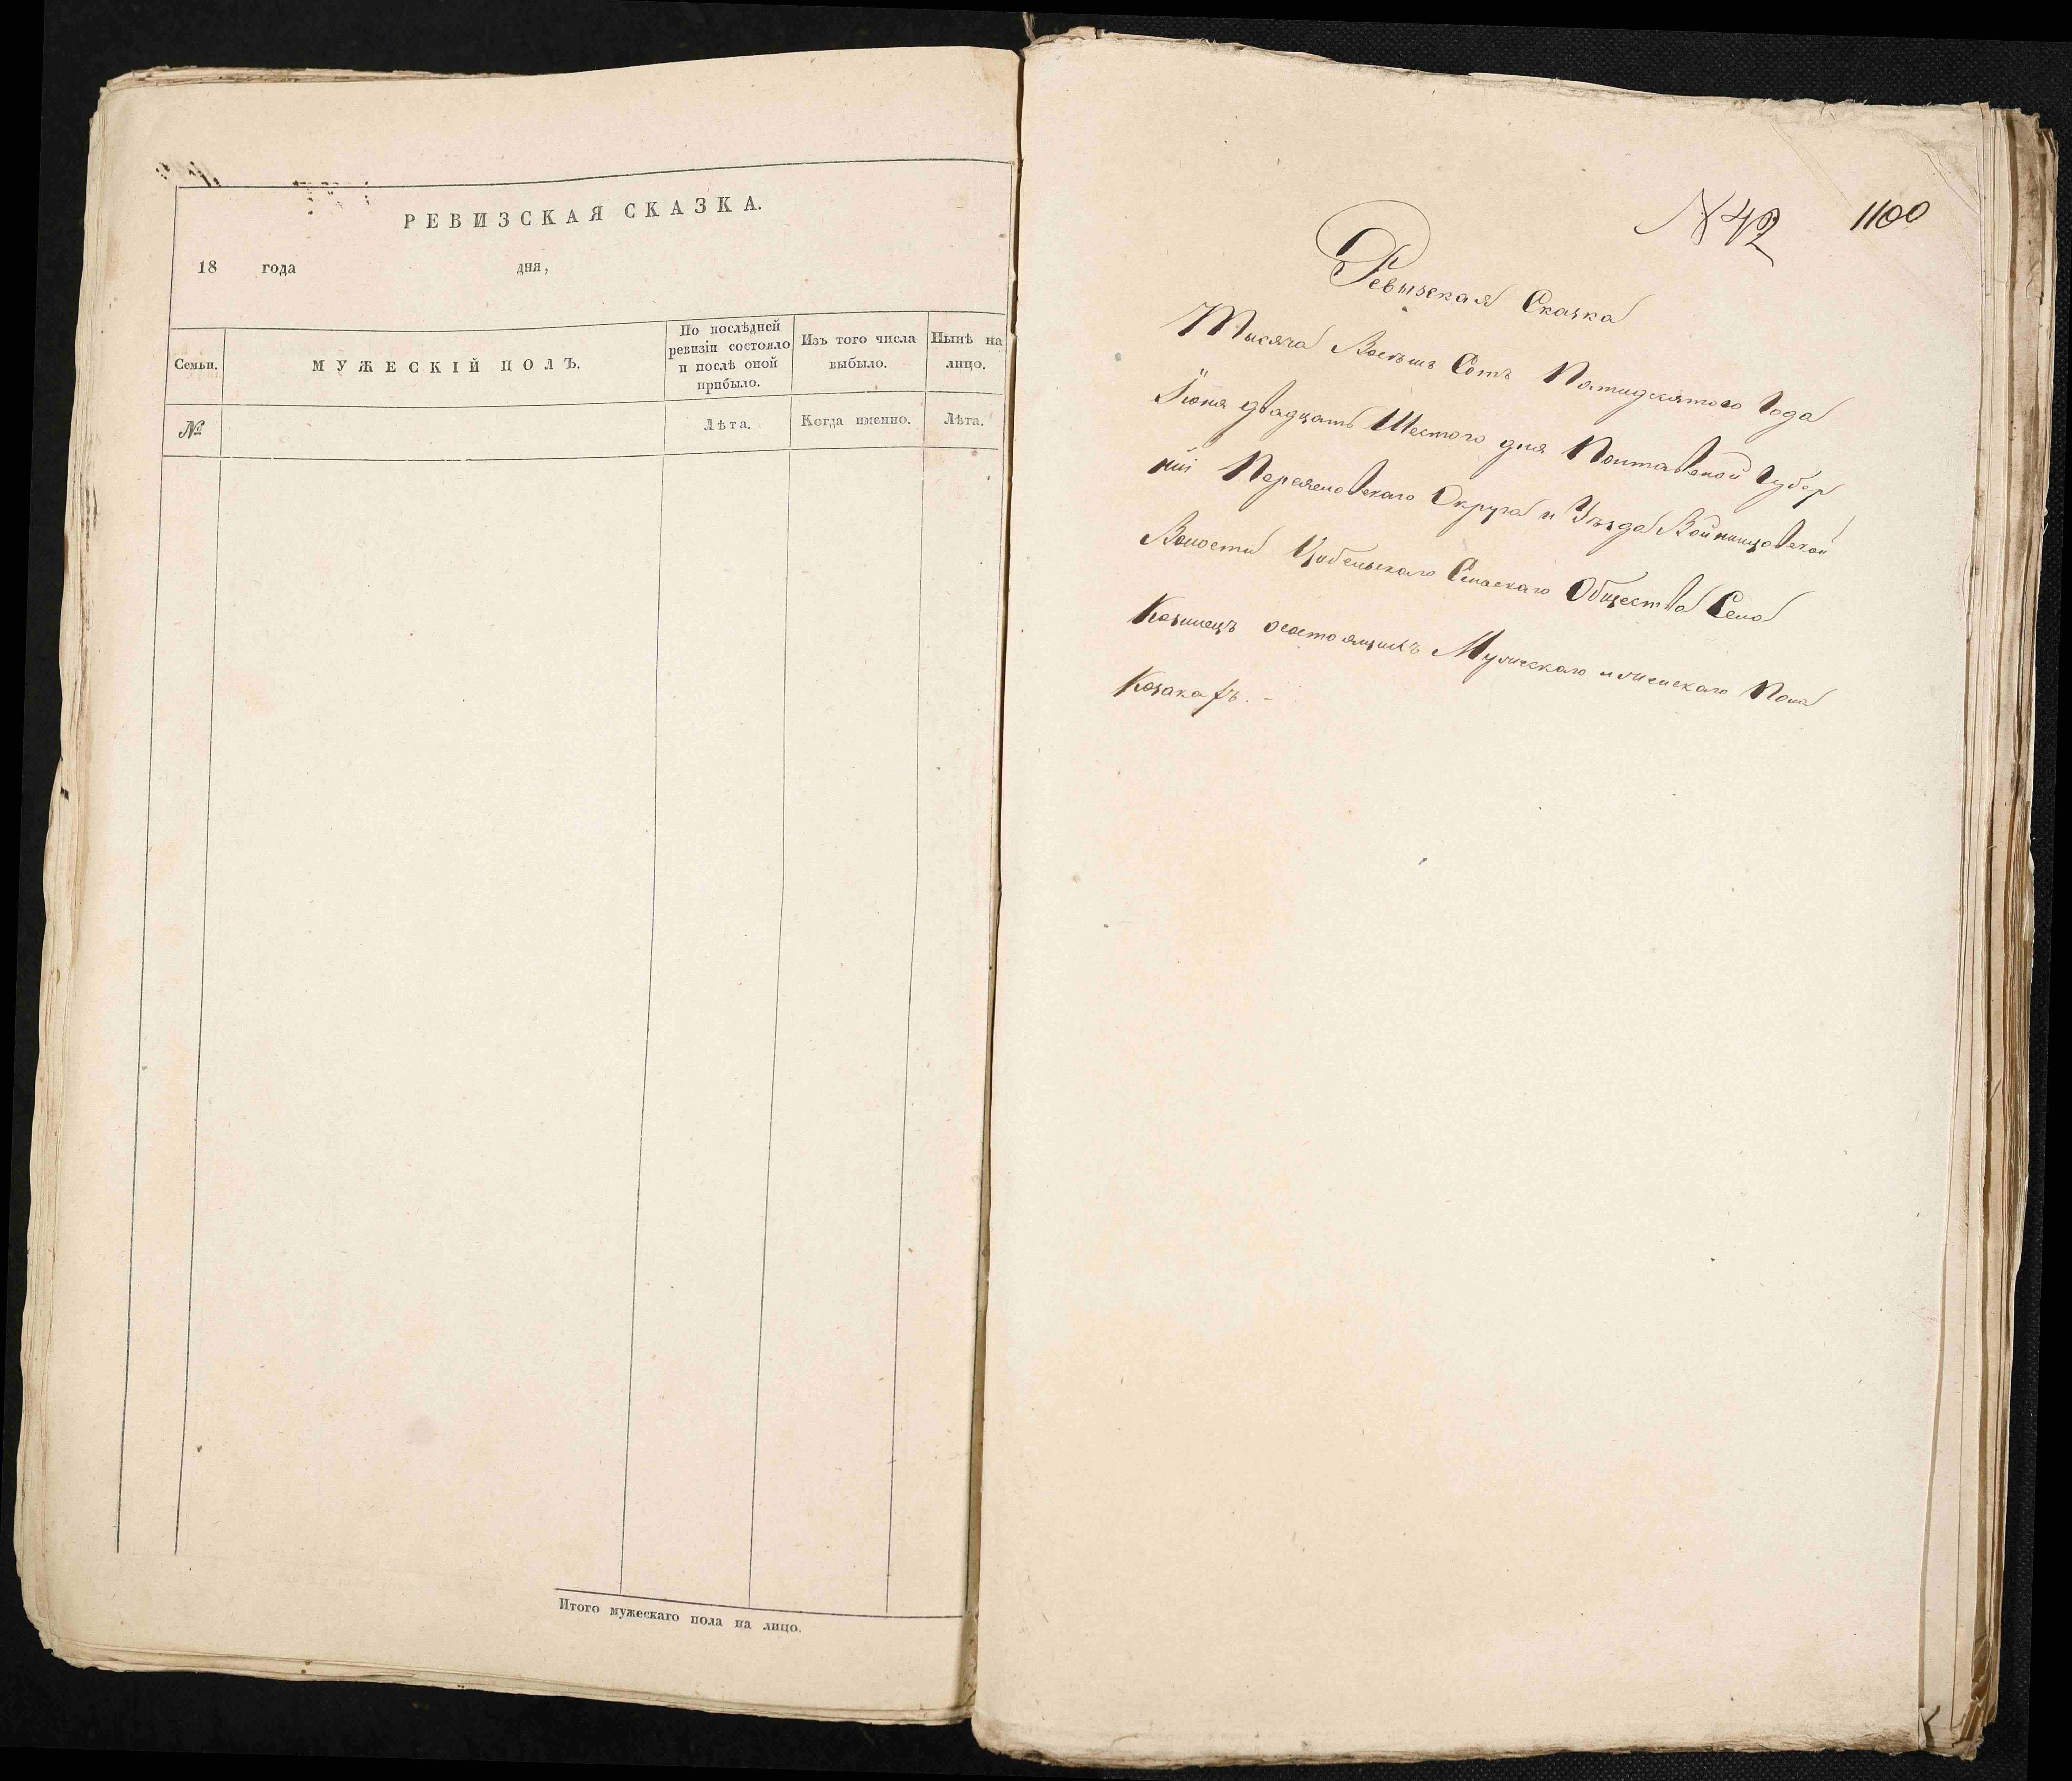 РЕВИЗСКАЯ СКАЗКА.
18 года дня,
Семьи.
МУЖЕСКІЙ ПОЛЪ.
По послѣдней
ревизіи состояло
и послѣ оной
прибыло.
Изъ того числа
выбыло.
Нынѣ на
лицо.
№
Лѣта.
Когда именно.
Лѣта.
Итого мужескаго пола на лицо.
№ 42 1100
Ревызская Сказка
Тысяча Восемь Сотъ Пятидесятого Года
Іюня двадцать Шестого дня Полтавской Губер
ніи Переясловскаго Округа и Уѣзда Войтовцовской
Волости Цибельскаго Сельскаго Общества Села
Козинецъ осостоящихъ Мужескаго и женскаго Пола
Козаковъ. -